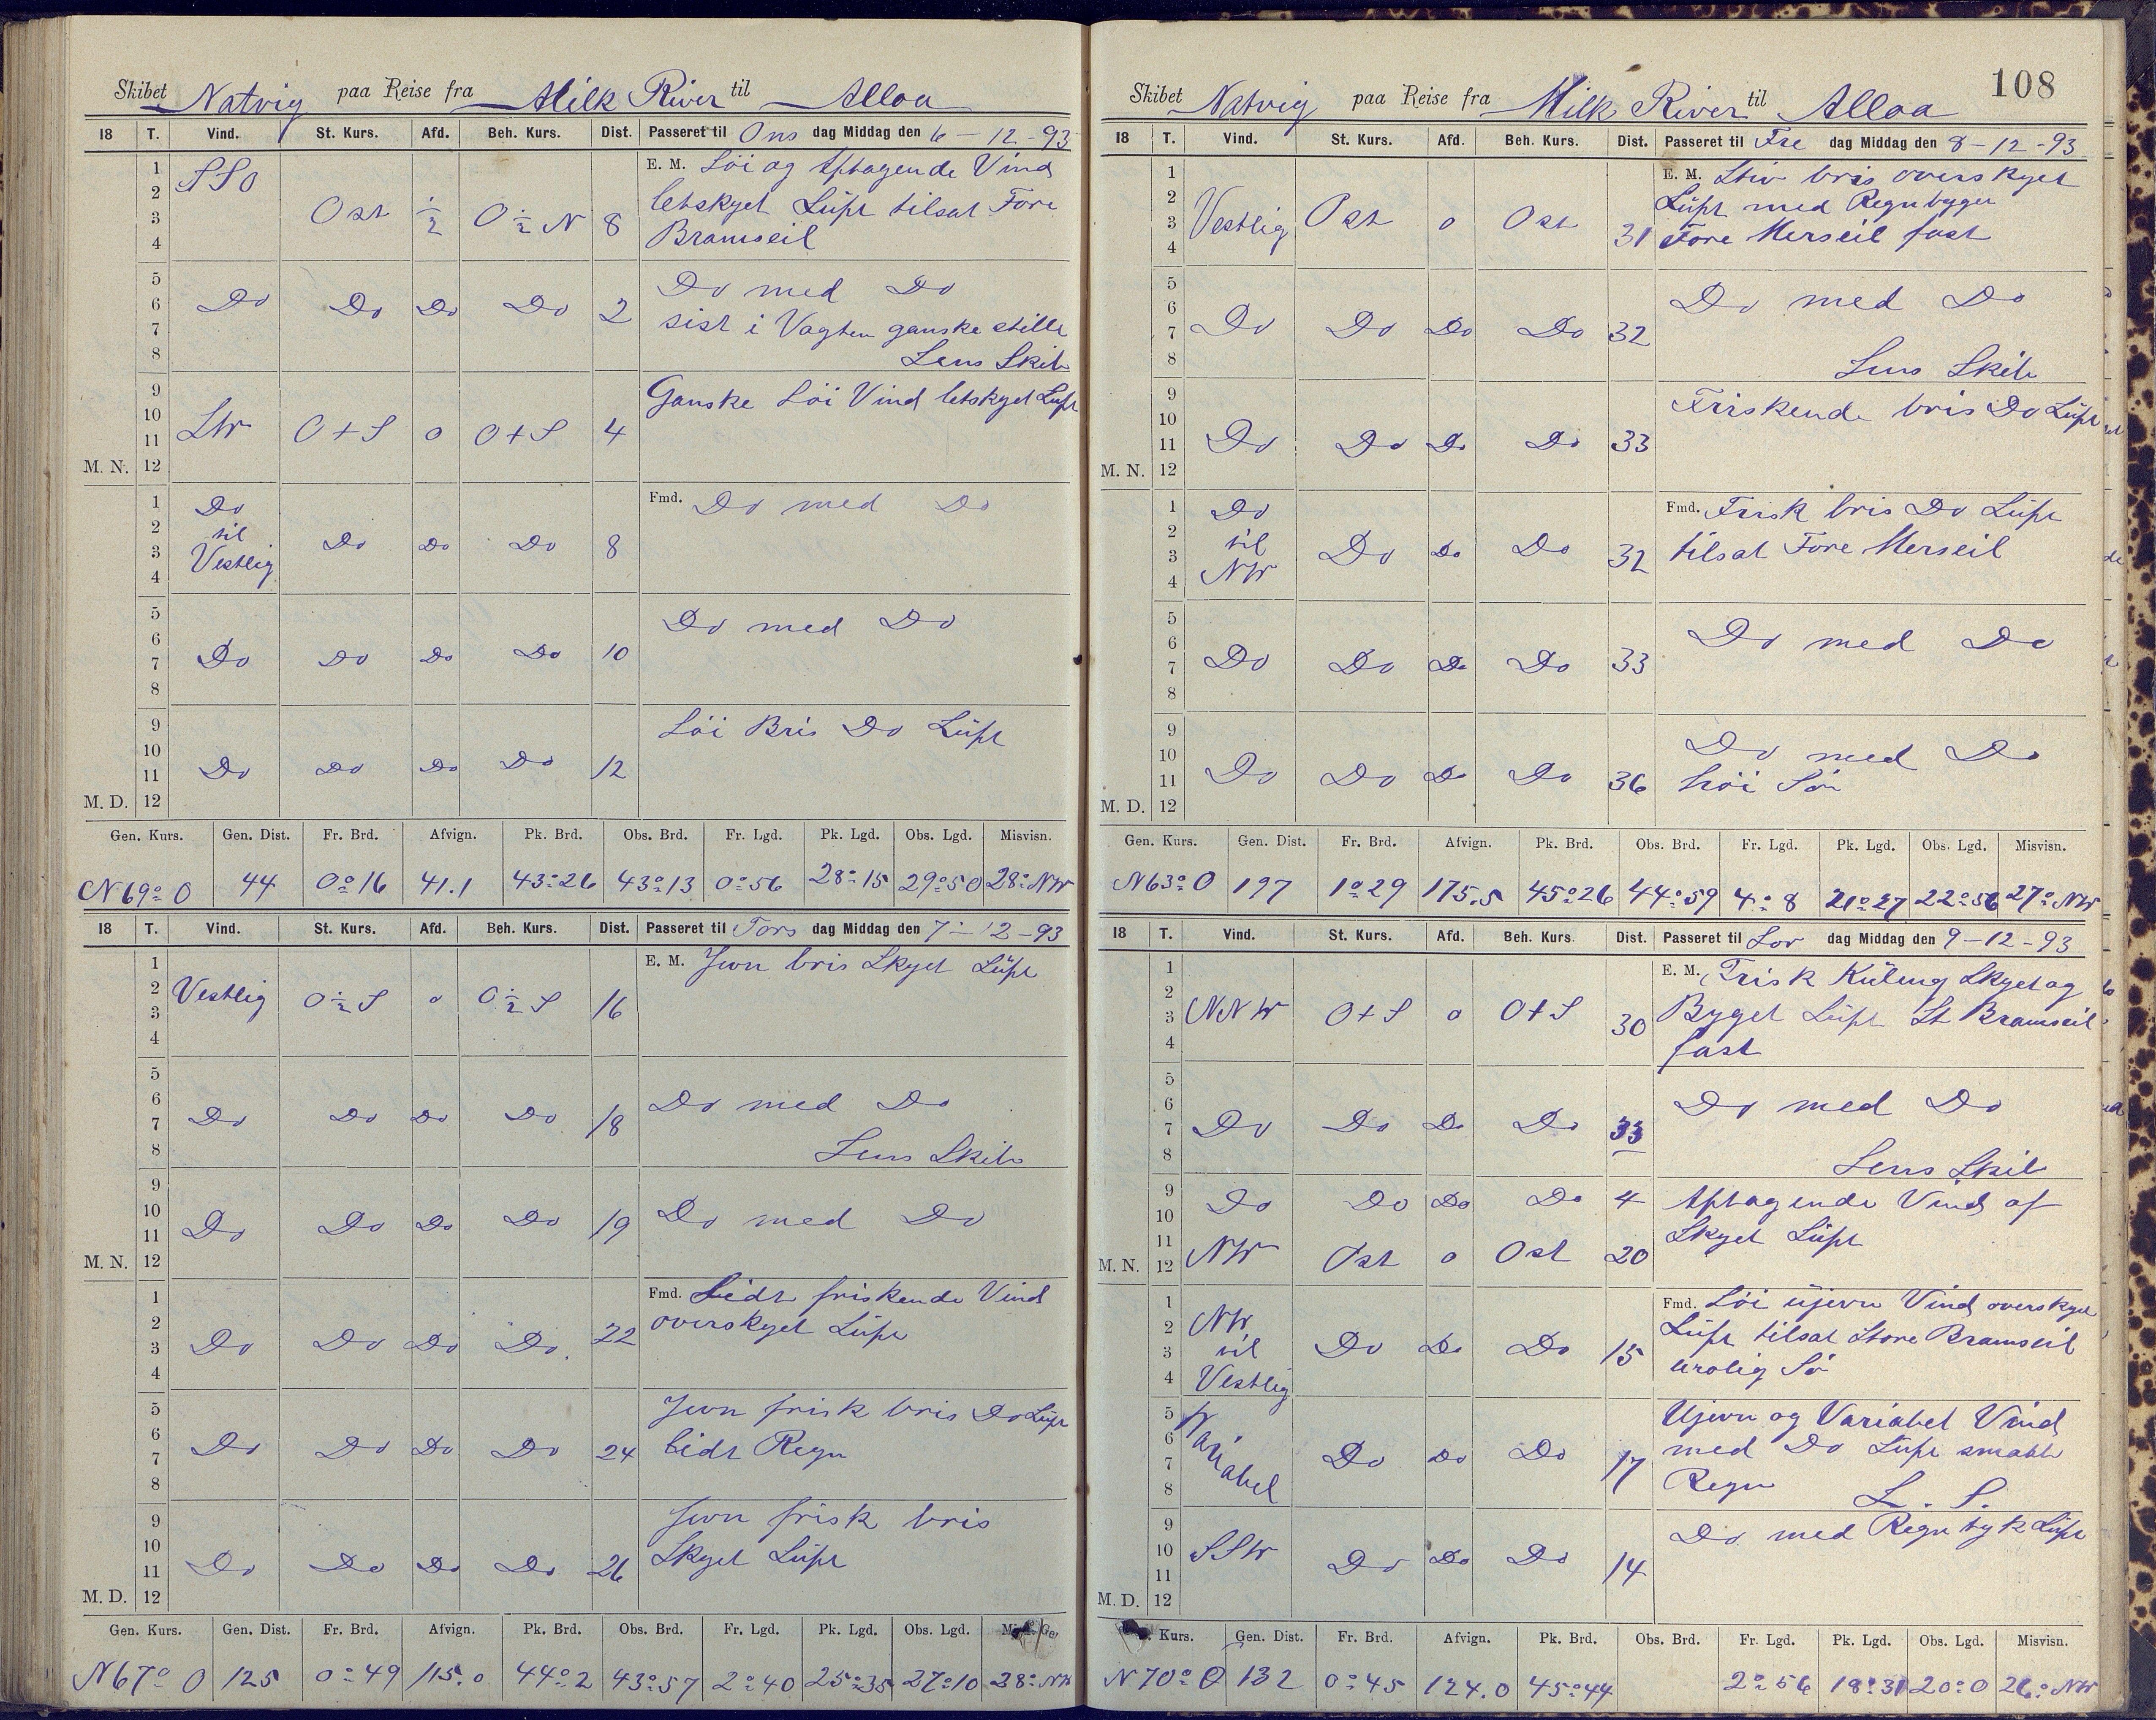 Skibet Natvig paa Reise fra Milk River til Alloa
18 T. Vind. St. Kurs. Afd. Beh. Kurs. Dist. Passeret til Ons dag Middag den 6-12-93
1 E. M. Löi og Aftagende Vind
2 SSO letskyet Luft tilsat Fore
3 Ost ½ O ½ N 8 Bramseil
4
5 Do med Do
6 Do Do Do Do 2 sist i Vagten ganske stille
7
8 Lens Skib
9 Ganske Löi Vind letskyet Luft
10
11 SW O+S o O+S 4
M. N. 12
1 Do Fmd. Do med Do
2 til
3 Vestlig Do Do Do 8
4
5 Do med Do
6
7 Do Do Do Do 10
8
9 Löi Bris Do Luft
10
11 Do Do Do Do 12
M. D. 12
Gen. Kurs. Gen. Dist. Fr. Brd. Afvign. Pk. Brd. Obs. Brd. Fr. Lgd. Pk. Lgd. Obs. Lgd. Misvisn.
N 69° O 44 0°16 41.1 43°26 43°13 0°56 28°15 29°50 28° NW
18 T. Vind. St. Kurs. Afd. Beh. Kurs. Dist. Passeret til Tors dag Middag den 7-12-93
1 E. M. Jevn bris Skyet Luft
2 Vestlig O ½ S o O ½ S 16
3
4
5 Do med Do
6
7 Do Do Do Do 18
8 Lens Skib
9
10 Do Do Do Do 19 Do med Do
11
M. N. 12
1 Fmd. Lidt friskende Vind
2 overskyet Luft
3 Do Do Do Do 22
4
5 Jevn frisk bris Do Luft
6
7 Do Do Do Do 24 Lidt Regn
8
9 Jevn frisk bris
10 Skyet Luft
11 Do Do Do Do 26
M. D. 12
Gen. Kurs. Gen. Dist. Fr. Brd. Afvign. Pk. Brd. Obs. Brd. Fr. Lgd. Pk. Lgd. Obs. Lgd.
N 67° O 125 0°49 115.0 44°2 43°57 2°40 25°35 27°10 28° NW
108
Skibet Natvig paa Reise fra Milk River til Alloa
18 T. Vind. St. Kurs. Afd. Beh. Kurs. Dist. Passeret til Fre dag Middag den 8-12-93
1 E. M. Stiv bris overskyet
2 Luft med Regnbyger
3 Vestlig Ost o Ost 31 Fore Merseil fast
4
5 Do med Do
6
7 Do Do Do Do 32
8 Lens Skib
9 Friskende bris Do Luft
10
11 Do Do Do Do 33
M. N. 12
1 Do Fmd. Frisk bris Do Luft
2 til tilsat Fore Merseil
3 NW Do Do Do 32
4
5 Do med Do
6
7 Do Do Do Do 33
8
9 Do med Do
10 höi Sö
11 Do Do Do Do 36
M. D. 12
Gen. Kurs. Gen. Dist. Fr. Brd. Afvign. Pk. Brd. Obs. Brd. Fr. Lgd. Pk. Lgd. Obs. Lgd. Misvisn.
N 63° O 197 1°29 175.5 45°26 44°59 4°8 21°27 22°56 27° NW
18 T. Vind. St. Kurs. Afd. Beh. Kurs. Dist. Passeret til Lör dag Middag den 9-12-93
1 E. M. Frisk Kuling Skyet og
2 Byget Luft St Bramseil
3 NNW O+S o O+S 30 fast
4
5 Do med Do
6
7 Do Do Do Do 33
8 Lens Skib
9 Do Do Do Do 4 Aftagende Vind af
10 Skyet Luft
11 NW Ost o Ost 20
M. N. 12
1 NW Fmd. Löi ujevn Vind overskyet
2 til Luft tilsat Store Bramseil
3 Vestlig Do Do Do 15 urolig Sö
4
5 Variabel Ujevn og Variabel Vind
6 Do Do Do 17 med Do Luft smaat
7 Regn
8 L. S.
9 Do med Regntyk Luft
10 SSW Do Do Do 14
11
M. D. 12
Kurs. Gen. Dist. Fr. Brd. Afvign. Pk. Brd. Obs. Brd. Fr. Lgd. Pk. Lgd. Obs. Lgd. Misvisn.
N 70° O 132 0°45 124.0 45°44 2°56 18°31 20°0 26° NW